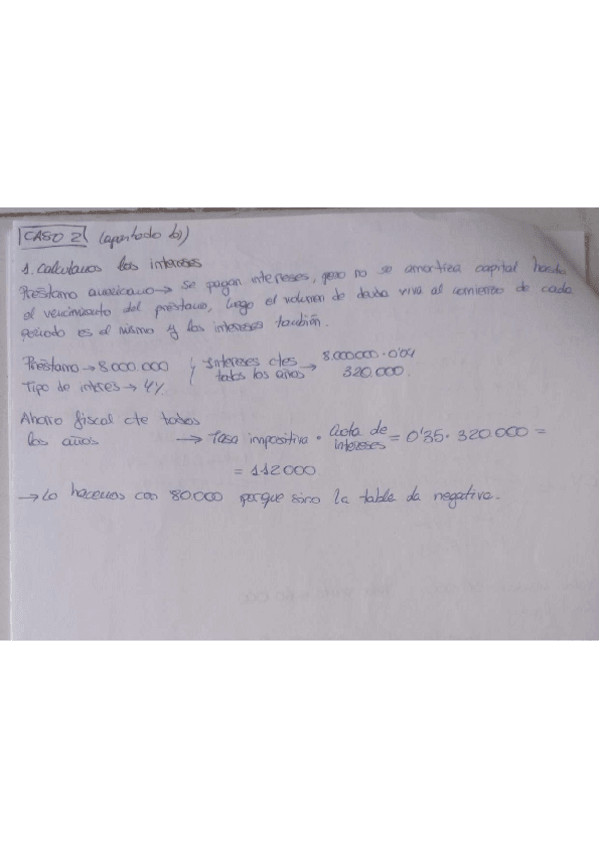 CASO 2 (apartado b)
1. Calculamos los intereses
Préstamo americano → se pagan intereses, pero no se amortiza capital hasta
el vencimiento del préstamo, luego el volumen de deuda viva al comienzo de cada
periodo es el mismo y los intereses también.
Préstamo → 8.000.000 Intereses ctes todos los años → 8.000.000 · 0'04
Tipo de interés → 4% 320.000.
Ahorro fiscal cte todos
los años → Tasa impositiva · Cuota de intereses = 0'35 · 320.000 =
= 112000
→ Lo hacemos con 80.000 porque sino la tabla da negativa.